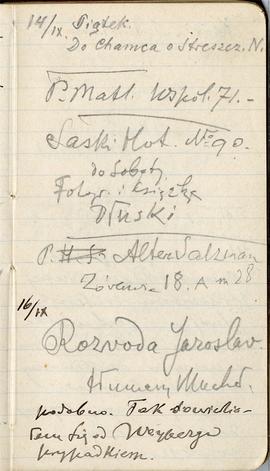 14/IX Piątek.
Do Chamca o Streszcz. N.
P. Matl. Wspól. 71.-
Saski Hot. No 90.
do Soboty
Fotogr. i książkę
Dłuski
P. Alter Salzman
18. A m 28
16/IX
Rozvoda Jaroslav.
podobno. Tak dowiedzia-
łem się od Weyberga
przypadkiem.